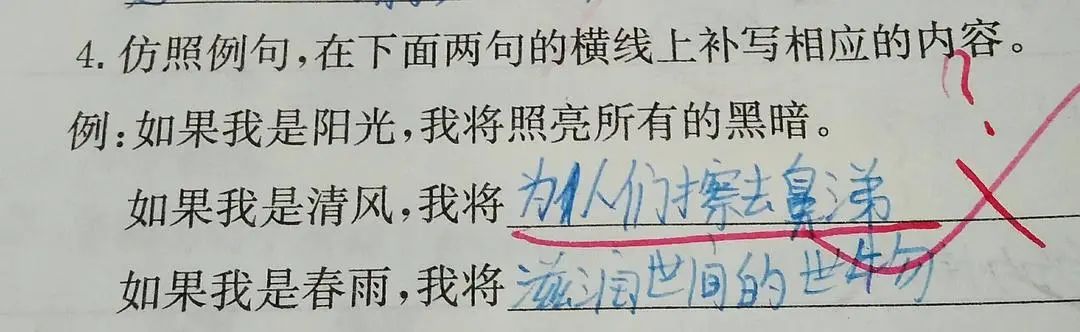 4. 仿照例句,在下面两句的横线上补写相应的内容。
例:如果我是阳光,我将照亮所有的黑暗。
如果我是清风,我将为人们擦去鼻涕
如果我是春雨,我将滋润世间的
?